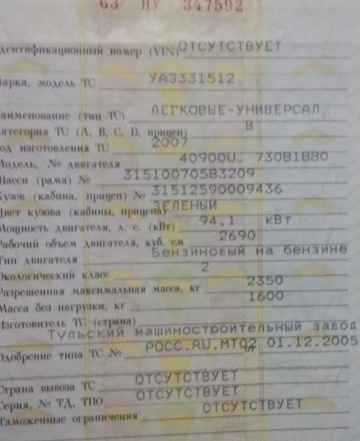 63 НУ 347592
дентификационный номер (VIN) ОТСУТСТВУЕТ
Марка, модель ТС УАЗ331512
Наименование (тип ТС) ЛЕГКОВЫЕ-УНИВЕРСАЛ
Категория ТС (A, B, C, D, прицеп) В
од изготовления ТС 2007
Модель, № двигателя 40900U, 730В1В80
Шасси (рама) № 315100705В3209
Кузов (кабина, прицеп) № 31512590009436
Цвет кузова (кабины, прицепа) ЗЕЛЕНЫЙ
Мощность двигателя, л. с. (кВт) 94,1 кВт
Рабочий объем двигателя, куб. см 2690
Тип двигателя Бензиновый на бензине
Экологический класс 2
Разрешенная максимальная масса, кг 2350
Масса без нагрузки, кг 1600
Изготовитель ТС (страна)
Тульский машиностроительный завод
Одобрение типа ТС № РОСС.RU.МТ02 01.12.2005
Страна вывоза ТС ОТСУТСТВУЕТ
Серия, № ТД, ТПО ОТСУТСТВУЕТ
Таможенные ограничения ОТСУТСТВУЕТ